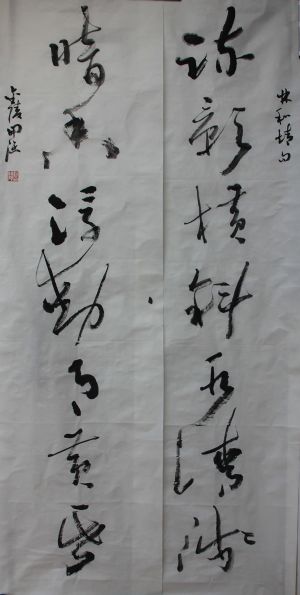 林和靖句
疏影横斜水清浅
暗香浮動月黄昏
金陵